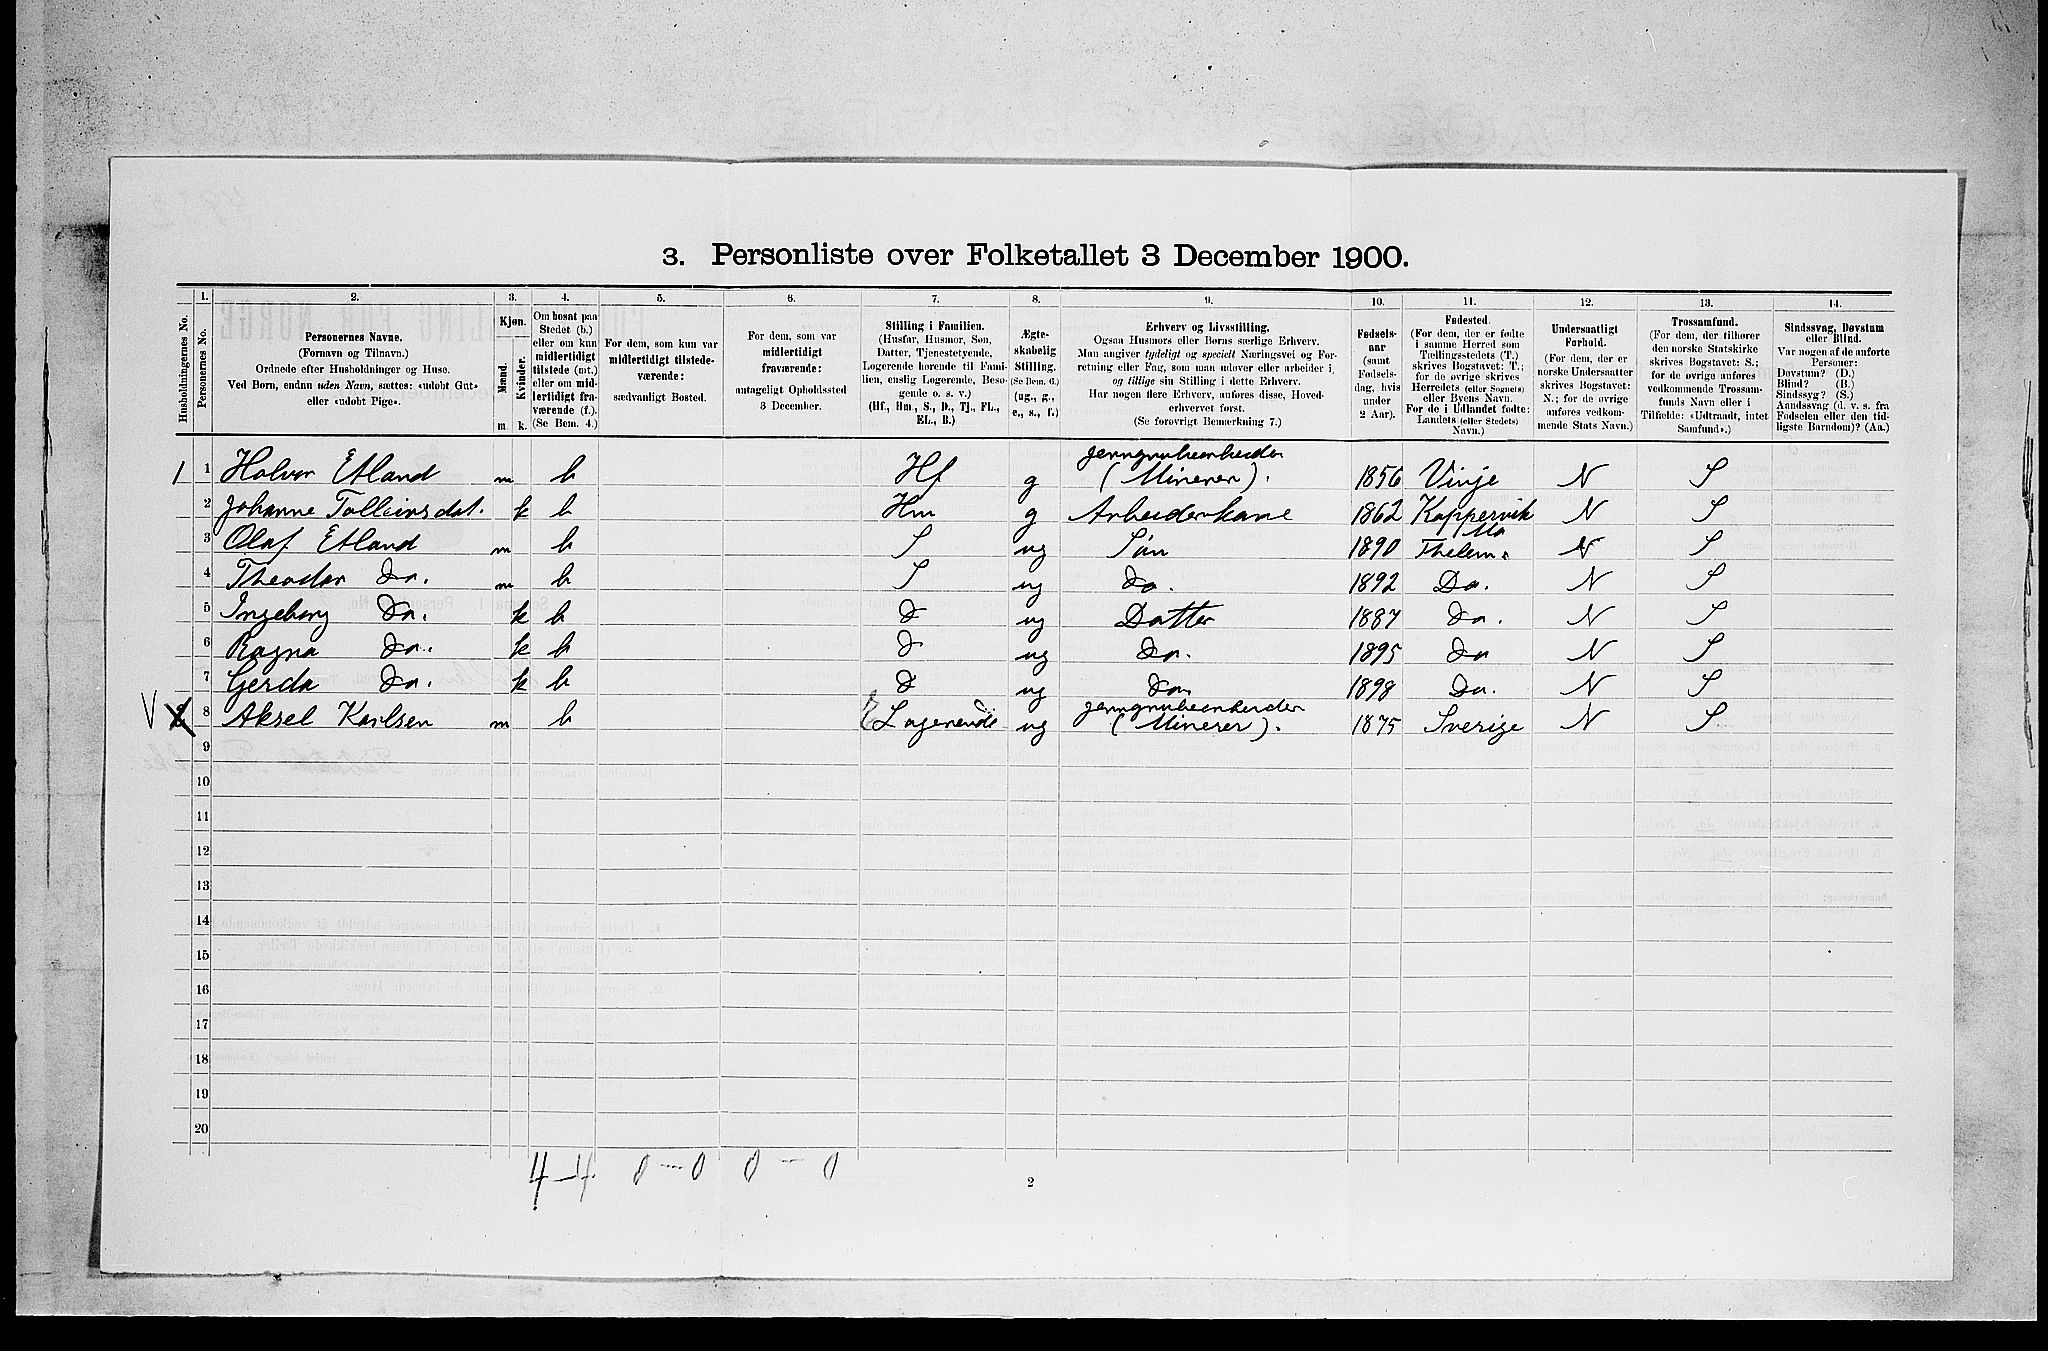 3. Personliste over Folketallet 3 December 1900.
Husholdningernes No.
1.
Personernes No.
2.
Personernes Navne.
(Fornavn og Tilnavn.)
Ordnede efter Husholdninger og Huse.
Ved Børn, endnu uden Navn, sættes: «udøbt Gut»
eller «udøbt Pige».
3.
Kjøn.
Mænd.
Kvinder.
m k.
4.
Om bosat paa
Stedet (b.)
eller om kun
midlertidigt
tilstede (mt.)
eller om mid-
lertidigt fra-
værende (f.).
(Se Bem. 4.)
5.
For dem, som kun var
midlertidigt tilstede-
værende:
sædvanligt Bosted.
6.
For dem, som var
midlertidigt
fraværende:
antageligt Opholdssted
3 December.
7.
Stilling i Familien.
(Husfar, Husmor, Søn,
Datter, Tjenestetyende,
Logerende hørende til Fami-
lien, enslig Logerende, Besø-
gende o. s. v.)
(Hf., Hm., S., D., Tj., FL.,
EL., B.)
8.
Ægte-
skabelig
Stilling.
(Se Bem. 6.)
(ug., g.,
e., s., f.)
9.
Erhverv og Livsstilling.
Ogsaa Husmors eller Børns særlige Erhverv.
Man angiver tydeligt og specielt Næringsvei og For-
retning eller Fag, som man udøver eller arbeider i,
og tillige sin Stilling i dette Erhverv.
Har nogen flere Erhverv, anføres disse, Hoved-
erhvervet først.
(Se forøvrigt Bemærkning 7.)
10.
Fødsels-
aar
(samt
Fødsels-
dag, hvis
under
2 Aar).
11.
Fødested.
(For dem, der er fødte
i samme Herred som
Tællingsstedets (T.)
skrives Bogstavet: T.;
for de øvrige skrives
Herredets (eller Sognets)
eller Byens Navn.
For de i Udlandet fødte:
Landets (eller Stedets)
Navn.)
12.
Undersaatligt
Forhold.
(For dem, der er
norske Undersaatter
skrives Bogstavet:
N.; for de øvrige
anføres vedkom-
mende Stats Navn.)
13.
Trossamfund.
(For dem, der tilhører
den norske Statskirke
skrives Bogstavet: S.;
for de øvrige anføres
vedkommende Trossam-
funds Navn eller i
Tilfælde: «Udtraadt, intet
Samfund».)
14.
Sindssvag, Døvstum
eller Blind.
Var nogen af de anførte
Personer:
Døvstum? (D.)
Blind? (B.)
Sindssyg? (S.)
Aandssvag (d. v. s. fra
Fødselen eller den tid-
ligste Barndom)? (Aa.)
1 1 Halvor Etland m b Hf g jerngrubearbeider (Minerer). 1856 Vinje N S
2 Johanne Tolleivsdat. k b Hm g Arbeiderkone 1862 Koppervik N S
3 Olaf Etland m b S ug Søn 1890 Thelem. N S
4 Theodor do. m b S ug do. 1892 Do. N S
5 Ingeborg do. k b d ug Datter 1887 do. N S
6 Ragna do. k b d ug do. 1895 do N S
7 Gerda do. k b d ug do. 1898 Do. N S
V 8 Aksel Karlsen m b E Logerende ug jerngrubearbeider (Minerer). 1875 Sverige N S
9
10
11
12
13
14
15
16
17
18
19
20
4-4 0-0 0-0
2